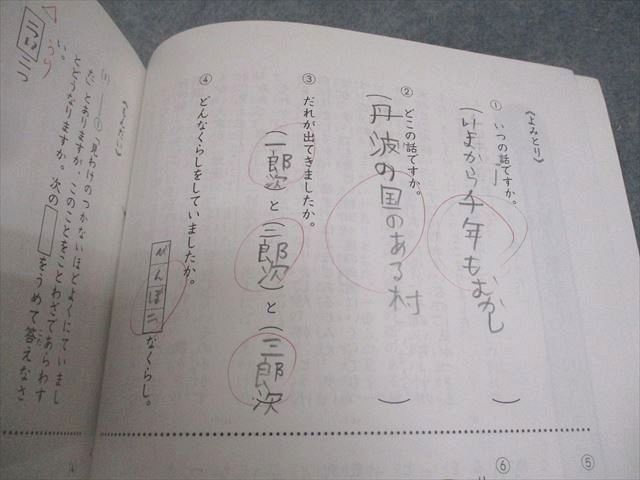 《よみとり》
① いつの話ですか。
(今から千年もむかし)
② どこの話ですか。
(丹波の国のある村)
③ だれが出てきましたか。
(一郎次)と(二郎次)と(三郎次)
④ どんなくらしをしていましたか。
びんぼうなくらし。
⑤
⑥
「見わけのつかないほどよくにていまし
た」とありますが、このことをことわざであらわす
とどうなりますか。次の□をうめて答えなさ
い。
うり二つ
うり